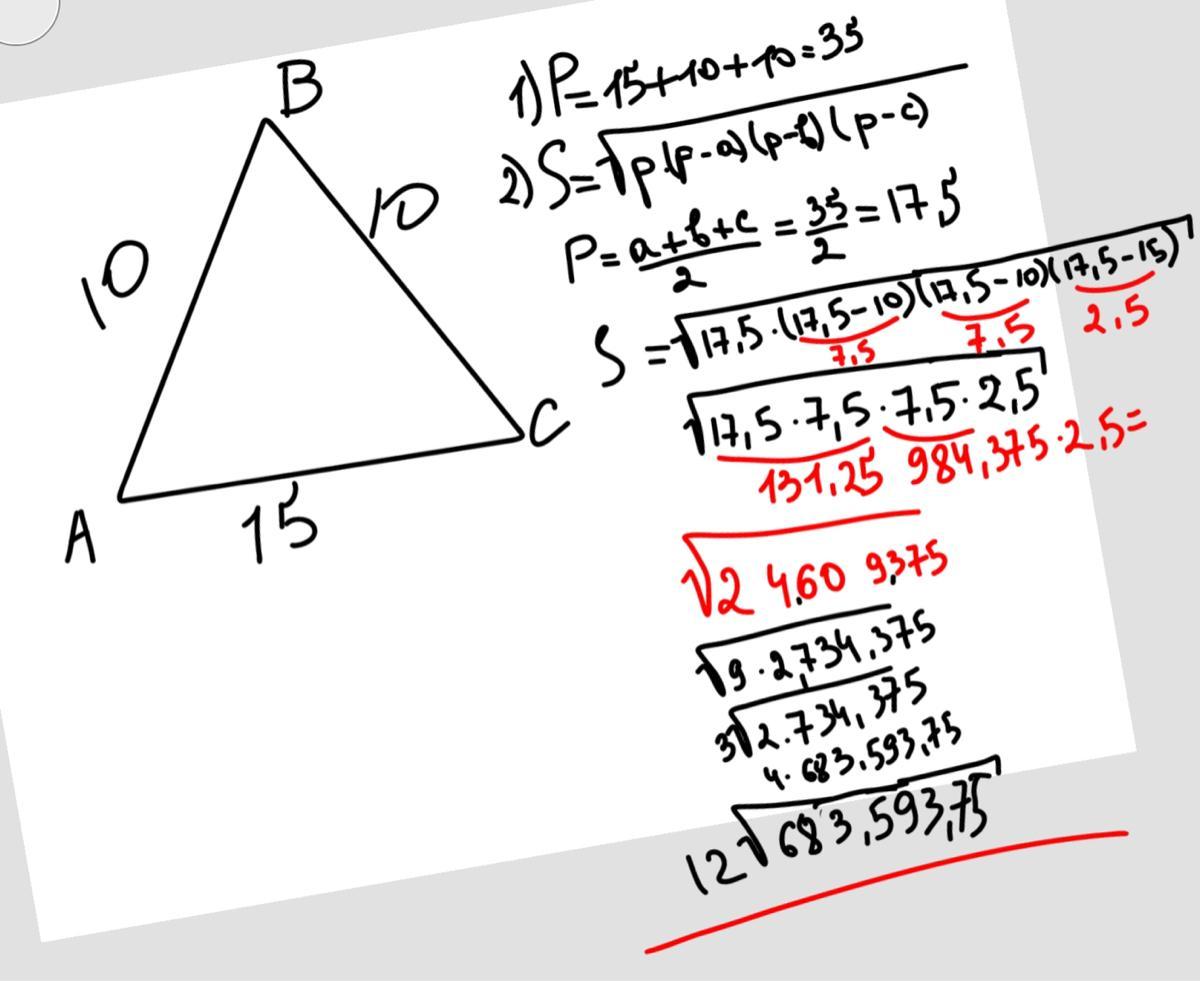 B
10
10
A
15
C
1) P=15+10+10=35
2) S=√p·(p-a)(p-b)(p-c)
P=a+b+c/2=35/2=17,5
S=√17,5·(17,5-10)(17,5-10)(17,5-15)
7,5 7,5 2,5
√17,5·7,5·7,5·2,5
131,25 984,375·2,5=
√2 4,60 9,375
√9·2,734,375
3√2.734,375
4·683.593,75
12√683,593,75